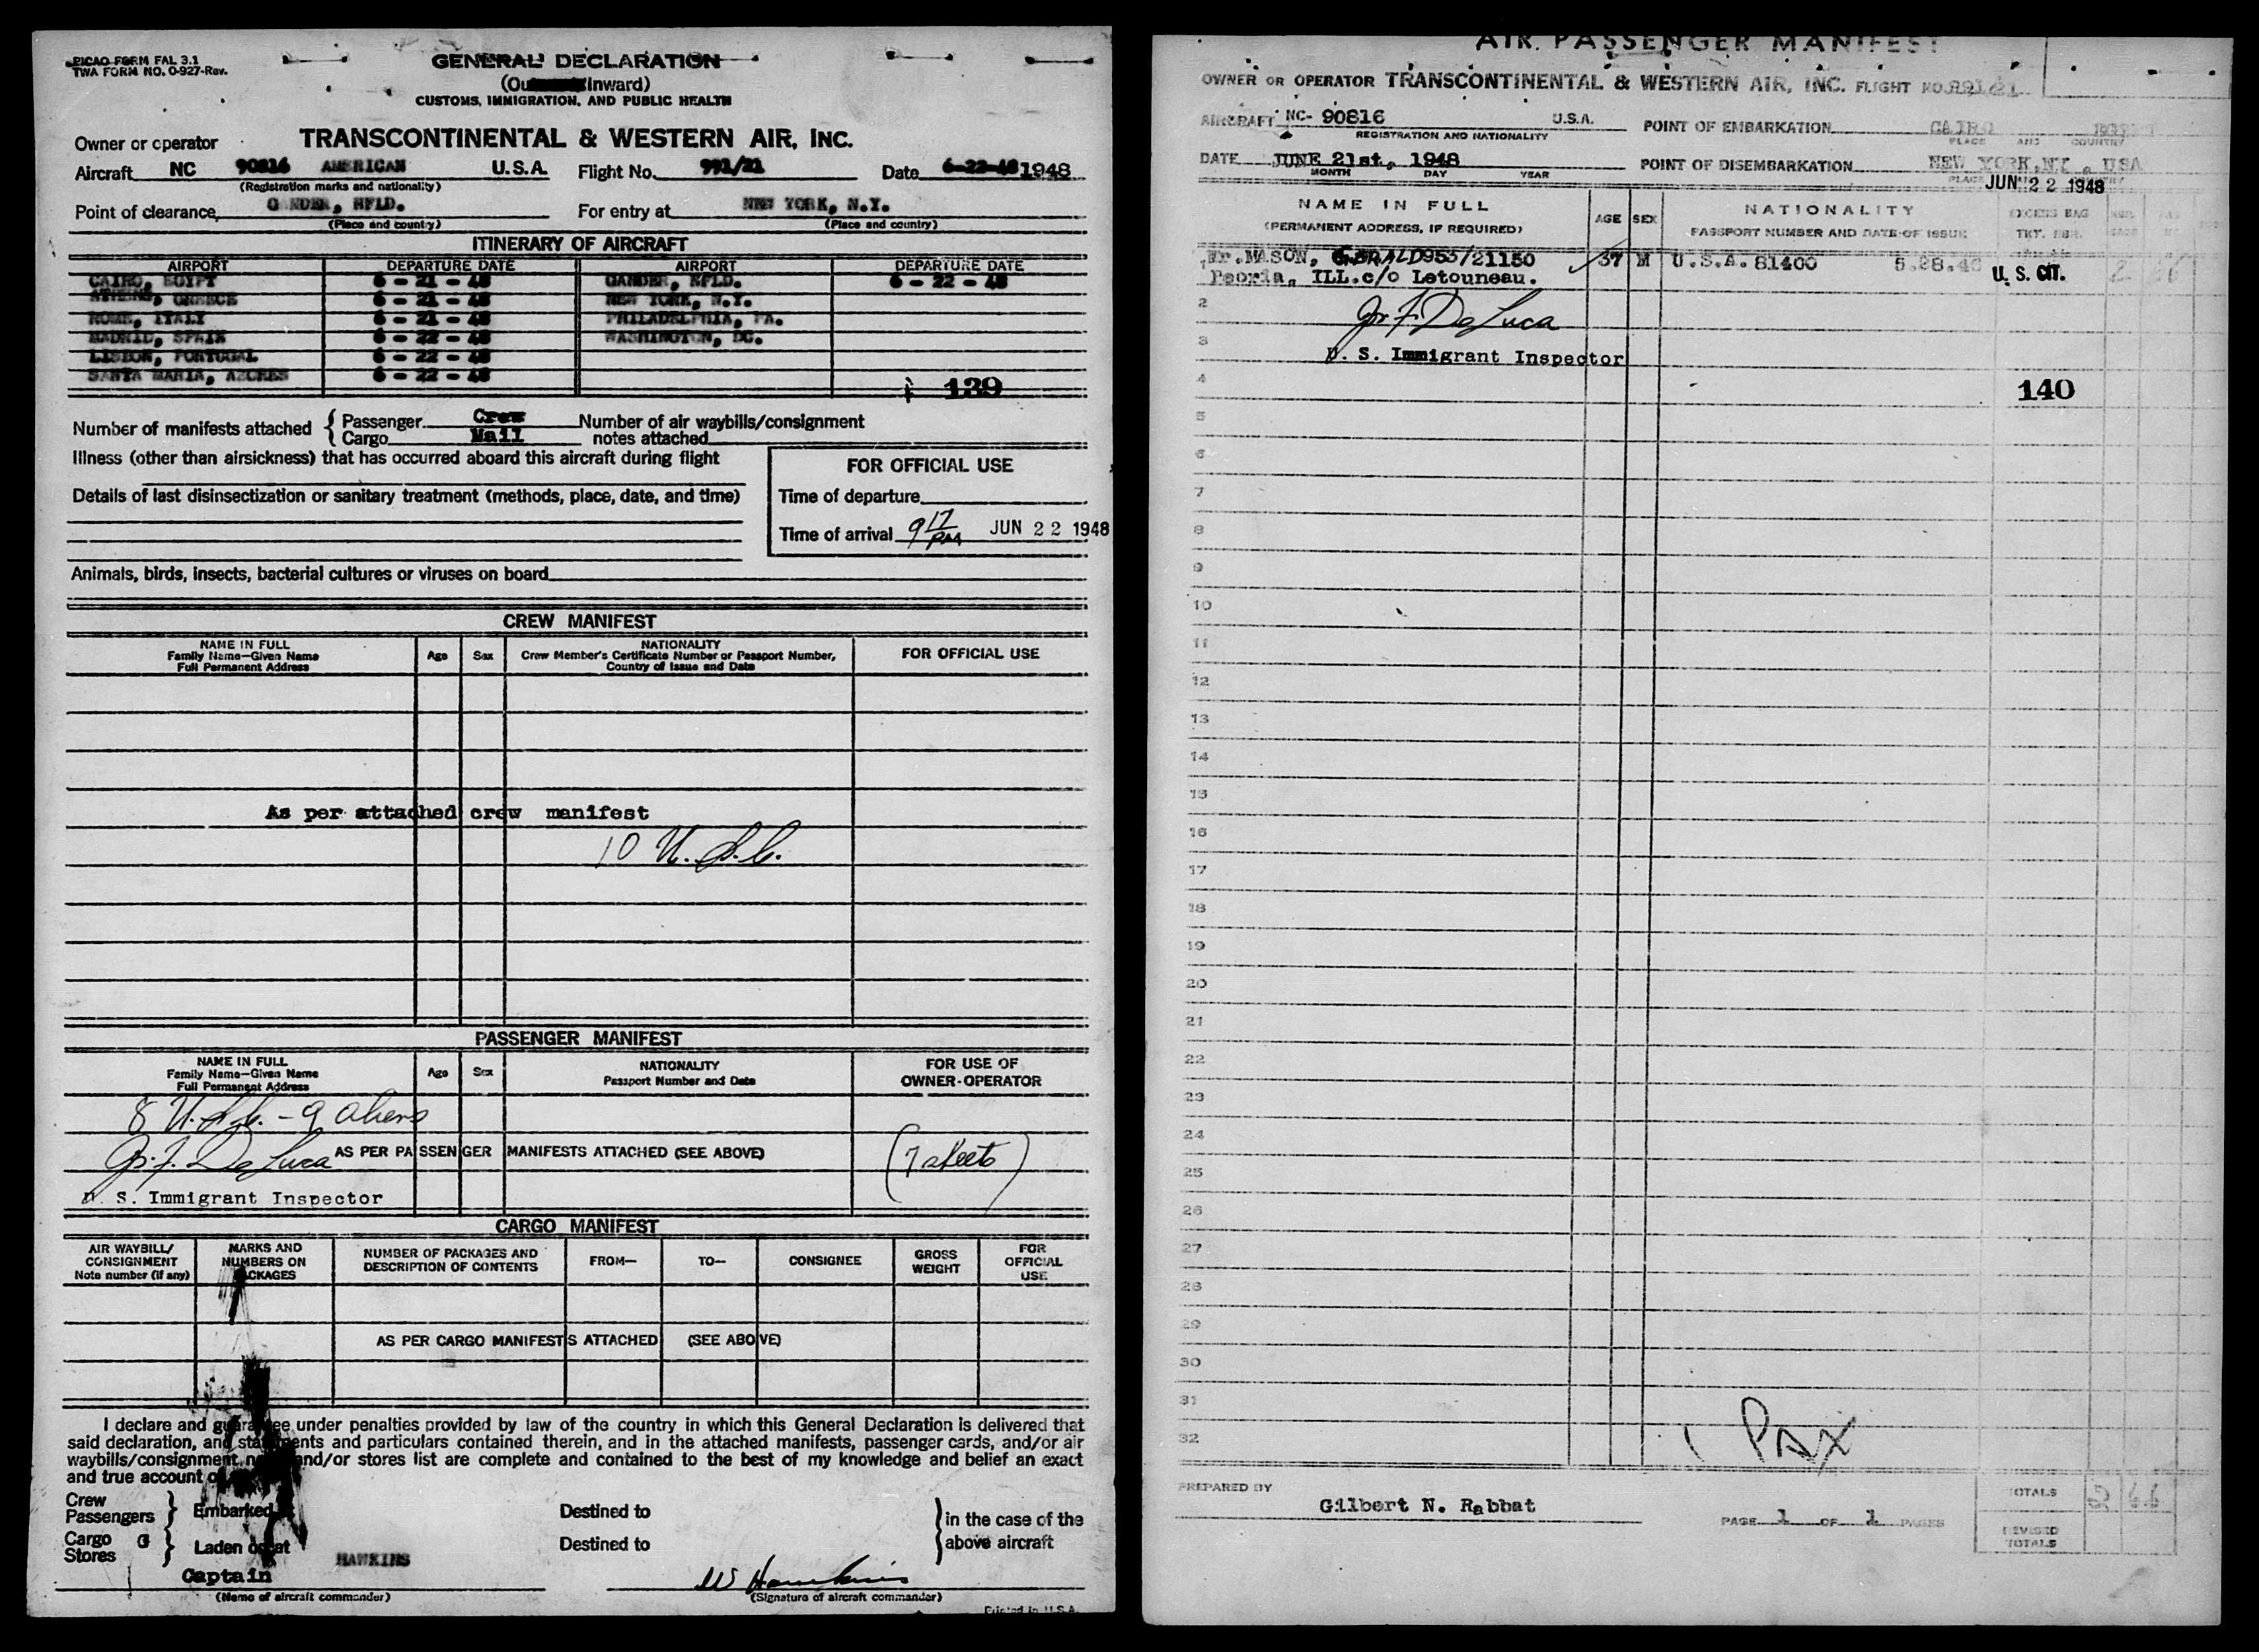 PICAO FORM FAL 3.1
TWA FORM NO. O-927-Rev.
GENERAL DECLARATION
(Ou Inward)
CUSTOMS, IMMIGRATION, AND PUBLIC HEALTH
Owner or operator TRANSCONTINENTAL & WESTERN AIR, INC.
Aircraft NC 90816 AMERICAN U.S.A. Flight No. 991/21 Date 6-22-48 1948
(Registration marks and nationality)
Point of clearance GANDER, NFLD. For entry at NEW YORK, N.Y.
(Place and county) (Place and country)
ITINERARY OF AIRCRAFT
AIRPORT DEPARTURE DATE AIRPORT DEPARTURE DATE
CAIRO, EGYPT 6 - 21 - 48 GANDER, NFLD. 6 - 22 - 48
ATHENS, GREECE 6 - 21 - 48 NEW YORK, N.Y.
ROME, ITALY 6 - 21 - 48 PHILADELPHIA, PA.
MADRID, SPAIN 6 - 22 - 48 WASHINGTON, DC.
LISBON, PORTUGAL 6 - 22 - 48
SANTA MARIA, AZORES 6 - 22 - 48
139
Number of manifests attached { Passenger Crew Number of air waybills/consignment
Cargo Mail notes attached
Illness (other than airsickness) that has occurred aboard this aircraft during flight
FOR OFFICIAL USE
Details of last disinsectization or sanitary treatment (methods, place, date, and time)
Time of departure
Time of arrival 9 17 PM JUN 22 1948
Animals, birds, insects, bacterial cultures or viruses on board
CREW MANIFEST
NAME IN FULL
Family Name—Given Name
Full Permanent Address
Age Sex
NATIONALITY
Crew Member's Certificate Number or Passport Number,
Country of Issue and Date
FOR OFFICIAL USE
As per attached crew manifest
10 U.S.C.
PASSENGER MANIFEST
NAME IN FULL
Family Name—Given Name
Full Permanent Address
Age Sex
NATIONALITY
Passport Number and Date
FOR USE OF
OWNER-OPERATOR
8 U.S.C. - 9 aliens
Jos. F. De Luca AS PER PASSENGER MANIFESTS ATTACHED (SEE ABOVE) (7 sheets)
U. S. Immigrant Inspector
CARGO MANIFEST
AIR WAYBILL/
CONSIGNMENT
Note number (if any)
MARKS AND
NUMBERS ON
PACKAGES
NUMBER OF PACKAGES AND
DESCRIPTION OF CONTENTS
FROM— TO— CONSIGNEE
GROSS
WEIGHT
FOR
OFFICIAL
USE
AS PER CARGO MANIFESTS ATTACHED (SEE ABOVE)
I declare and guarantee under penalties provided by law of the country in which this General Declaration is delivered that
said declaration, and statements and particulars contained therein, and in the attached manifests, passenger cards, and/or air
waybills/consignment notes and/or stores list are complete and contained to the best of my knowledge and belief an exact
and true account of
Crew
Passengers } Embarked Destined to } in the case of the
Cargo G
Stores } Laden on at Destined to above aircraft
Captain HAWKINS W Hawkins
(Name of aircraft commander) (Signature of aircraft commander)
Printed in U.S.A.
AIR PASSENGER MANIFEST
OWNER OR OPERATOR TRANSCONTINENTAL & WESTERN AIR, INC. FLIGHT NO. 991/21
AIRCRAFT NC- 90816 U.S.A. POINT OF EMBARKATION CAIRO EGYPT
REGISTRATION AND NATIONALITY PLACE AND COUNTRY
DATE JUNE 21st, 1948 POINT OF DISEMBARKATION NEW YORK.NY , USA
MONTH DAY YEAR
JUN 22 1948
NAME IN FULL
(PERMANENT ADDRESS, IF REQUIRED)
AGE SEX
NATIONALITY
PASSPORT NUMBER AND DATE OF ISSUE
EXCESS BAG
TKT. NBR.
1 Mr.MASON, GERALD 953/21150 37 M U.S.A. 81400 U. S. CIT.
Peoria, ILL.c/o Letouneau.
2 Jos. F. De Luca
3 U. S. Immigrant Inspector
4 140
5
6
7
8
9
10
11
12
13
14
15
16
17
18
19
20
21
22
23
24
25
26
27
28
29
30
31
32
1 PAX
PREPARED BY Gilbert N. Rabbat
PAGE 1 OF 1 PAGES
TOTALS
REVISED
TOTALS